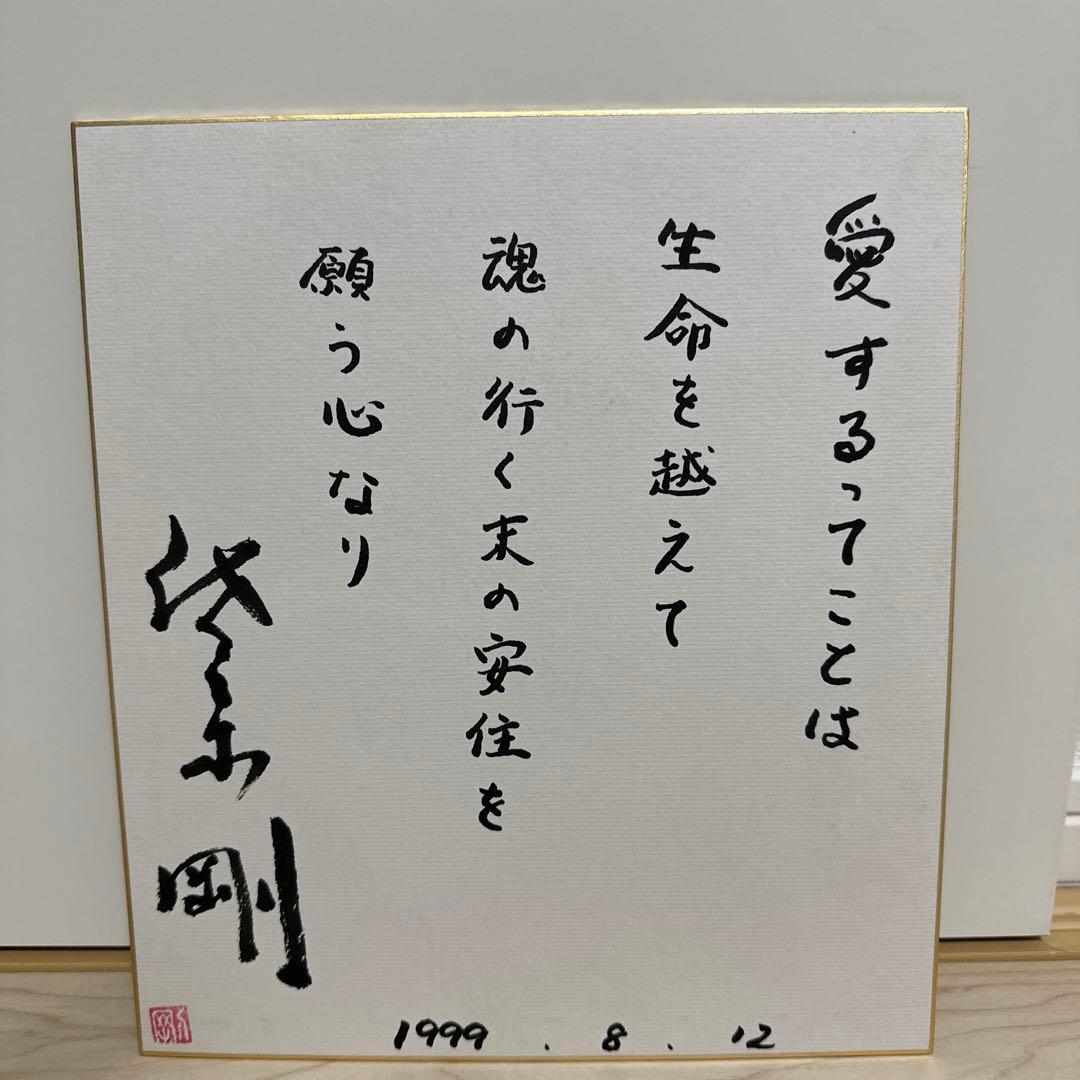 愛するってことは
生命を越えて
魂の行く末の安住を
願う心なり
剛
1999.8.12